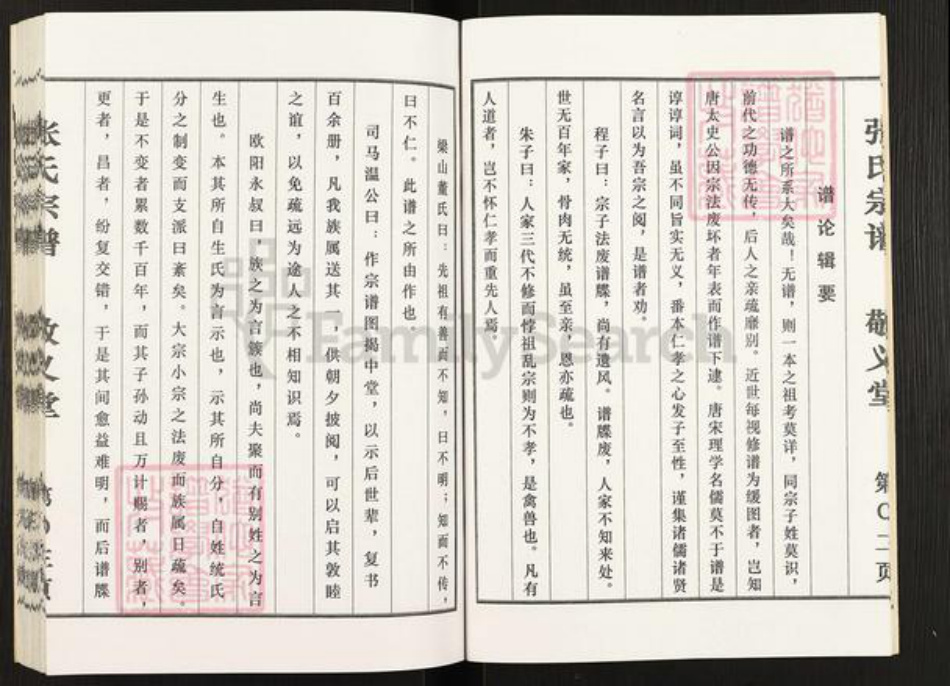 张氏宗谱 敬义堂 第〇二页
谱论辑要
谱之所系大矣哉！无谱，则一本之祖考莫详，同宗子姓莫识，
前代之功德无传，后人之亲疏靡别。近世每视修谱为缓图者，岂知
唐太史公因宗法废坏者年表而作谱下逮。唐宋理学名儒莫不于谱是
谆谆词，虽不同旨实无义，番本仁孝之心发子至性，谨集诸儒诸贤
名言以为吾宗之阅，是谱者劝。
程子曰：宗子法废谱牒，尚有遗风。谱牒废，人家不知来处。
世无百年家，骨肉无统，虽至亲，恩亦疏也。
朱子曰：人家三代不修而悖祖乱宗则为不孝，是禽兽也。凡有
人道者，岂不怀仁孝而重先人焉。
梁山董氏曰：先祖有善而不知，曰不明；知而不传，
曰不仁。此谱之所由作也。
司马温公曰：作宗谱图揭中堂，以示后世辈，复书
百余册，凡我族属送其一，供朝夕披阅，可以启其敦睦
之谊，以免疏远为途人之不相知识焉。
欧阳永叔曰，族之为言簇也，尚夫聚而有别姓之为言
生也。本其所自生氏为言示也，示其所自分，自姓统氏
分之制变而支派日紊矣。大宗小宗之法废而族属日疏矣。
于是不变者累数千百年，而其子孙动且万计赐者，别者，
更者，昌者，纷复交错，于是其间愈益难明，而后谱牒
张氏宗谱 敬义堂
FamilySearch